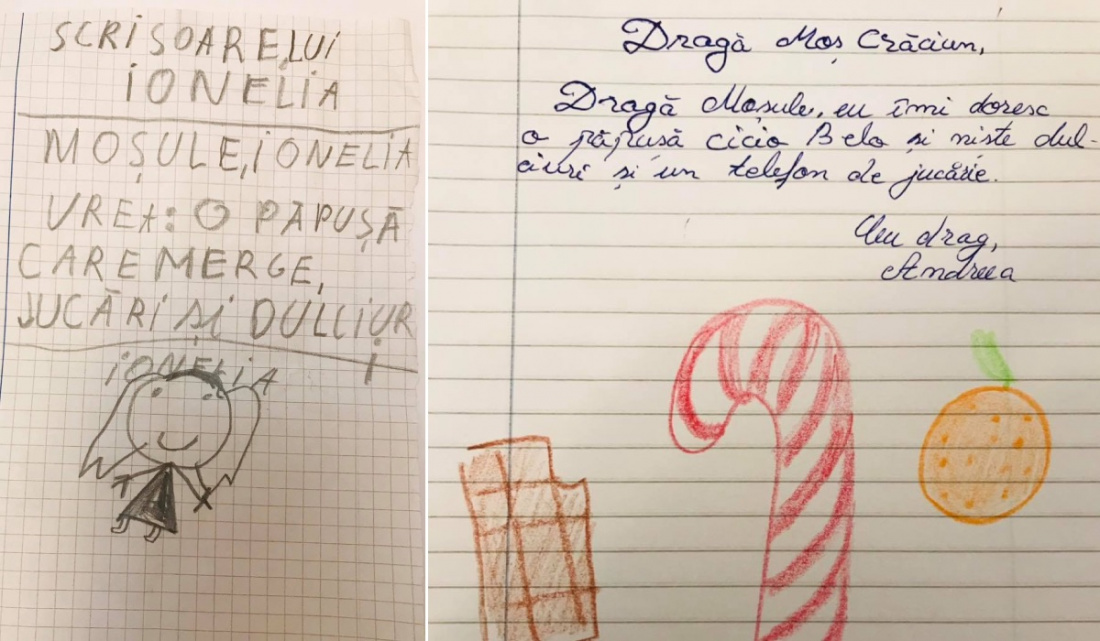 SCRISOARE,LUI
IONELIA
MOȘULE,IONELIA
VREA: O PĂPUȘĂ
CARE MERGE,
JUCĂRI ȘI DULCIUR
I
IONELIA
Dragă Moș Crăciun,
Dragă Moșule, eu îmi doresc
o păpusă cicio Belo și niste dul-
ciuri și un telefon de jucărie.
Cu drag,
Andreea